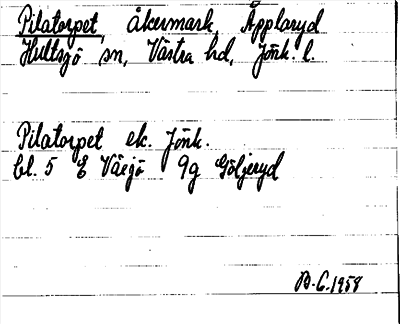 Pilatorpet, åkermark, Äpplaryd
Hultsjö sn, Västra hd, Jönk. l.
Pilatorpet ek. Jönk.
bl. 5 E Våejö 9g Göljeryd
B.C. 1958